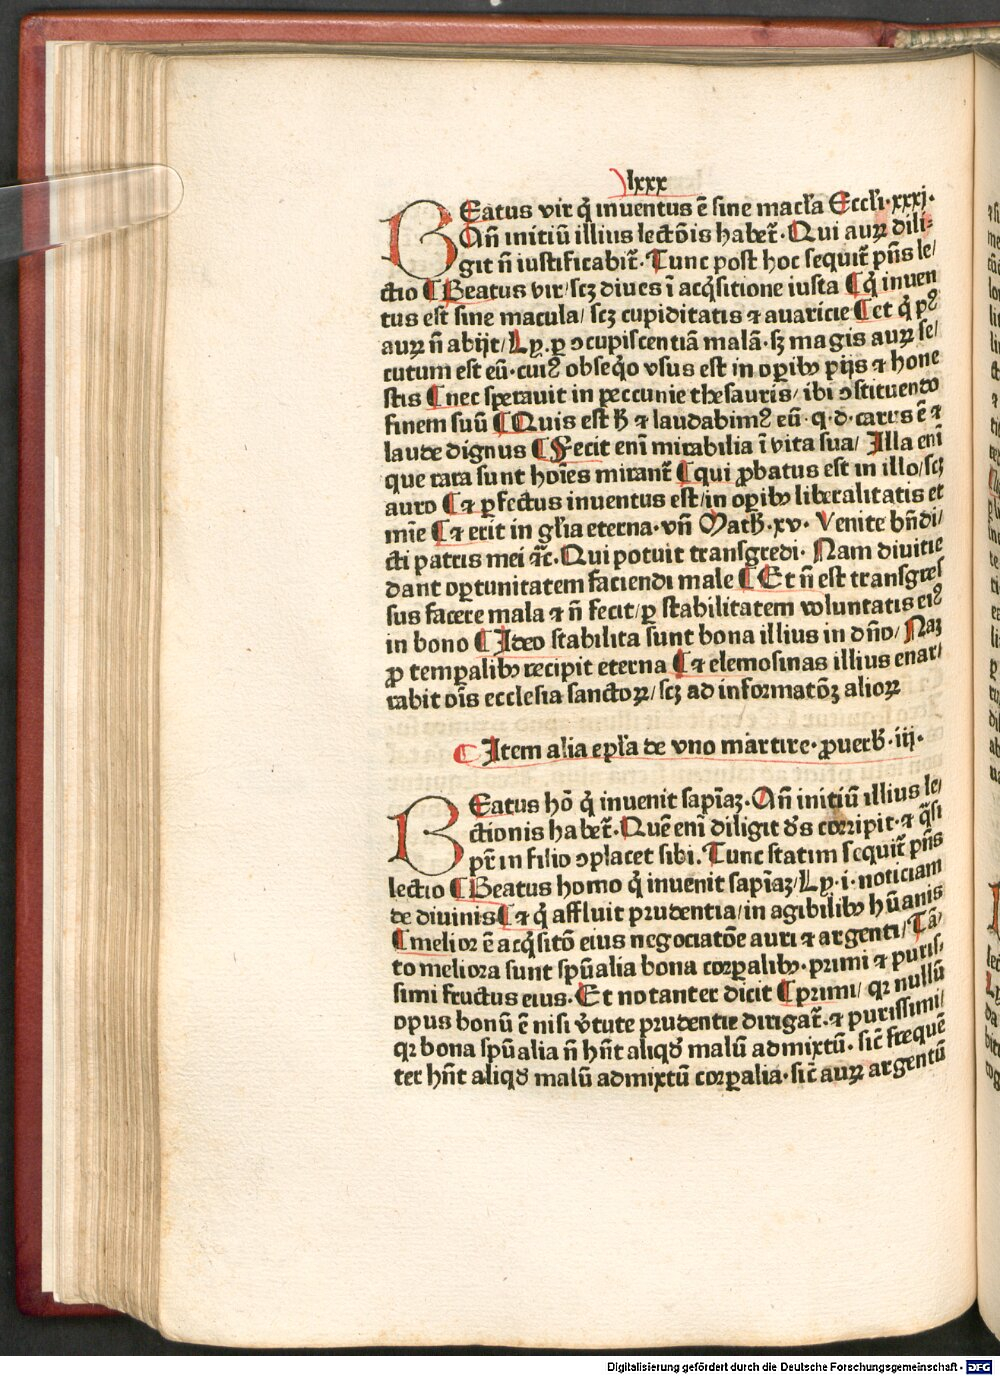 lxxx
BEatus vir q̇ inuentus ē sine mac̄la Eccl̄i·xxxj·
An̄ initiū illius lectōis habet̄·Qui auꝝ dili⸗
git n̄ iustificabit̄·Tunc post hoc sequit̄ pn̄s le/
ctio ¶Beatus vir/scꝫ diues ī acq̇sitione iusta ¶q̇ inuen
tus est sine macula/ scꝫ cupiditatis ⁊ auaricie ¶et q̇ pꝰ
auꝝ n̄ abijt/Ly̱·ꝑ ↄcupiscentiā malā·sꝫ magis auꝝ se/
cutum est eū·cuiꝰ obseq̇o vsus est in oꝑibꝰ pijs ⁊ hone
stis ¶nec sperauit in peccunie thesauris/ibi ↄstituendo
finem suū ¶Quis est h̄ ⁊ laudabimꝰ eū·q·d·carus ē ⁊
laude dignus ¶Fecit eni̅ mirabilia ī vita sua/ Illa eni̅
que rara sunt hoīes mirant̄ ¶qui ꝓbatus est in illo/scꝫ
auro ¶⁊ ꝑfectus inuentus est/in oꝑibꝰ liberalitatis et
mīe ¶⁊ erit in gl̄ia eterna·vn̄ Math̄·xv· Venite bn̄di/
cti patris mei ⁊c̄·Qui potuit transgredi· Nam diuitie
dant oꝑtunitatem faciendi male ¶Et n̄ est transgres
sus facere mala ⁊ n̄ fecit/ꝑ stabilitatem voluntatis eiꝰ
in bono ¶Ideo stabilita sunt bona illius in dn̄o/ Naꝫ
ꝓ temꝑalibꝰ recipit eterna ¶⁊ elemosinas illius enar/
rabit ois̄ ecclesia sanctoꝝ/scꝫ ad informatōꝫ alioꝝ
¶Item alia epl̄a de vno martire·ꝓuerb̄·iij·
BEatus hō q̇ inuenit sapīaꝫ·An̄ initiū illius le/
ctionis habet̄·Quē eni̅ diligit d̄s corripit·⁊ q̄si
pr̄ in filio ↄplacet sibi·Tunc statim sequit̄ pn̄s
lectio ¶Beatus homo q̇ inuenit sapīaꝫ/Ly̱·i·noticiam
de diuinis¶⁊ q̇ affluit prudentia/in agibilibꝰ hūanis
¶melior ē acq̇sitō eius negociatōe auri ⁊ argenti/Tā/
to meliora sunt spūalia bona corꝑalibꝰ·primi ⁊ puris/
simi fructus eius·Et notanter dicit ¶primi/ qꝛ nullū
opus bonū ē nisi v̄tute prudentie dirigat̄·⁊ purissimi/
qꝛ bona spūalia n̄ hn̄t aliqd̄ malū admixtū·sic̄ freque̅
ter hn̄t aliqd̄ malū admixtū corꝑalia·sic̄ auꝝ argentū
Digitalisierung gefördert durch die Deutsche Forschungsgemeinschaft - DFG